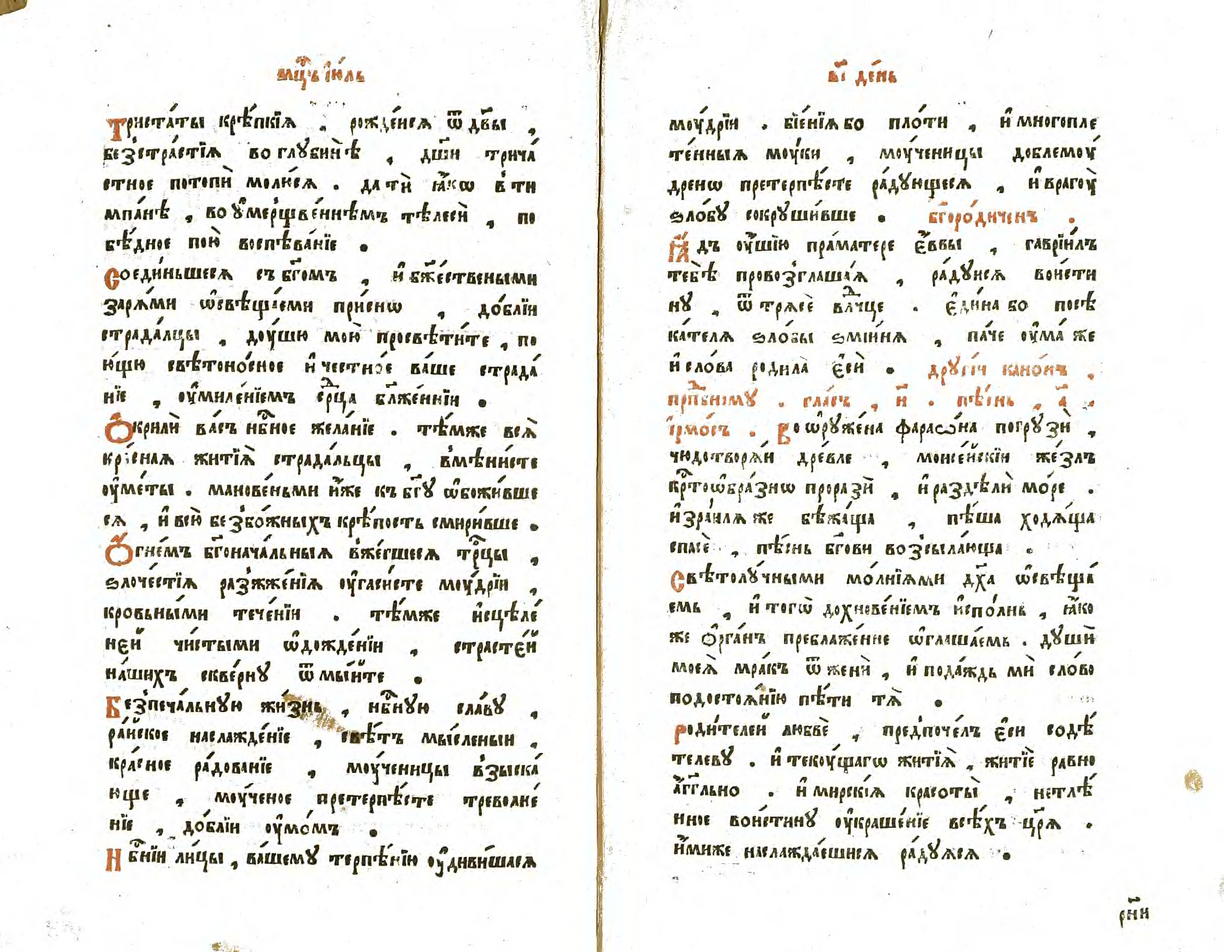 мцⷭ҇ъ і҆ю́ль
Триста́ты крѣ́пкїѧ , рожде́йсѧ ѿ дв҃ы ,
безстра́стїѧ во глꙋбинѣ̀ , дш҃и трича́
стное потопѝ молю́сѧ . да тѝ ꙗ҆́кѡ в̾ ти
мпа́нѣ , во ᲂу҆мерщве́ннѣмъ тѣ́лесѝ , по
бѣ́дное пою̀ воспѣва́нїе .
Соеди́ньшесѧ съ бг҃омъ , и҆ бж҃е́ствеными
заря́ми ѡ҆свѣща́еми при́снѡ , до́блїи
страда́лцы , дꙋ́шю мою̀ просвѣти́те , по
ю́щю свѣтоно́сное и҆ че́стно́е ва́ше страда́
нїе , ᲂу҆миле́нїемъ се́рⷣца бл҃же́ннїи .
Ѻ҆крилѝ ва́съ нбⷭ҇ное жела́нїе . тѣ́мже всѧ̀
кра́снаѧ житїѧ̀ страда́льцы , вмѣни́сте
ᲂу҆ме́ты . манове́ньми и҆́же къ бг҃ꙋ ѡ҆божи́вше
сѧ , и҆ всю̀ безбо́жныхъ крѣ́пость смири́вше .
Ѻ҆гне́мъ бг҃онача́льныѧ вже́гшесѧ трⷪ҇цы ,
ѕлоче́стїѧ разжже́нїѧ ᲂу҆гаси́сте мꙋ́дрїи ,
кровьными тече́нїи . тѣ́мже и҆сцѣле́
нє́й чи́стыми ѡ҆дожде́нїи , страсте́й
на́шихъ скве́рнꙋ ѿмы́йте .
Безпеча́льнꙋю жи́знь , нбⷭ҇нꙋю сла́вꙋ ,
ра́йское наслажде́нїе , свѣ́тъ мы́сленыи ,
кра́сное ра́дованїе , мꙋ́ченицы взыска́
юще , мꙋ́ченое претерпѣ́сте треволне́
нїе , до́блїи ᲂу҆мо́мъ .
Нбⷭ҇нїи ли́цы , ва́шемꙋ терпѣ́нїю ᲂу҆диви́шасѧ
в҃і де́нь
мꙋ́дрїи . бїе́нїѧ бо пло́ти , и҆ многопле
те́нныѧ мꙋ́ки , мꙋ́ченицы доблемꙋ́
дренѡ претерпѣ́сте ра́дꙋющесѧ , и҆ врагѹ̀
ѕло́бꙋ сокрꙋши́вше . бг҃оро́диченъ .
Ꙗ҆́дъ ᲂу҆́шїю прама́тере є҆́ввы , гаврїи́лъ
тебѣ̀ провозглаша́ѧ , ра́дꙋйсѧ вои́сти
нꙋ , ѿтрѧсѐ влⷣчце . є҆ди́на бо посѣ
ка́телѧ ѕло́бы ѕмїи́нѧ , па́че ᲂу҆ма́ же
и҆ сло́ва родила̀ є҆сѝ . дрꙋгі́й кано́нъ ,
прпⷣбномꙋ . гла́съ , и҃ . пѣ́снь , а҃ .
і҆рмо́съ . Воѡрꙋже́на фараѡ́на погрꙋзѝ ,
чюдотворѧ́й дре́вле , моисе́йскїи же́злъ
крⷭ҇тоѡбра́знѡ проразѝ , и҆ раздѣлѝ мо́ре .
и҆зра́илѧ же бѣжа́ща , пѣ́ша ходѧ́ща
спасѐ , пѣ́снь бг҃ови возсыла́юща .
Свѣтолꙋ́чными мо́лнїѧми дх҃а ѡ҆свѣща́
емь , и҆ того̀ дохнове́нїемъ и҆спо́лнь , ꙗ҆́ко
же ѻ҆рга́нъ преблаже́нне ѡ҆глаша́емь . дꙋшѝ
моеѧ̀ мра́къ ѿженѝ , и҆ пода́ждь мѝ сло́во
подостоѧ́нїю пѣ́ти тѧ̀ .
Роди́телей любвѐ , предпоче́лъ є҆сѝ содѣ́
телевꙋ . и҆ текꙋ́щагѡ житїѧ̀ , житїѐ равно
а҆́гг҃льно . и҆ мирскі́ѧ красоты̀ , нетлѣ́
нное вои́стинꙋ ᲂу҆краше́нїе всѣ́хъ цр҃ѧ̀ .
и҆́миже наслажда́ешисѧ ра́дꙋѧсѧ .
рн҃и